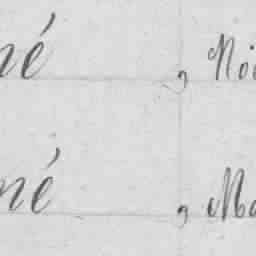 né , Noi
né , Ma